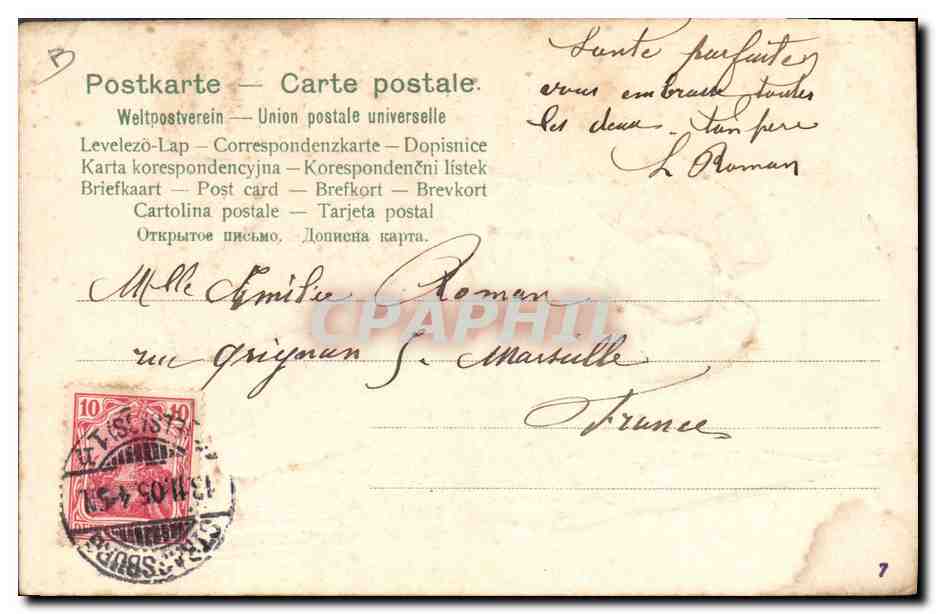 B
Postkarte — Carte postale.
Weltpostverein — Union postale universelle
Levelezö-Lap — Correspondenzkarte — Dopisnice
Karta korespondencyjna — Korespondenčni lístek
Briefkaart — Post card — Brefkort — Brevkort
Cartolina postale — Tarjeta postal
Открытое письмо. Дописна карта.
Sante parfaite
vous embrasse toutes
les deux. ton pere
L Roman
Mlle Emilie Roman
rue Grignan 5. Marseille
France
CPAPHIL
10 10
STRASSBURG
13.11.05.4-5N.
(ELS) 1
7